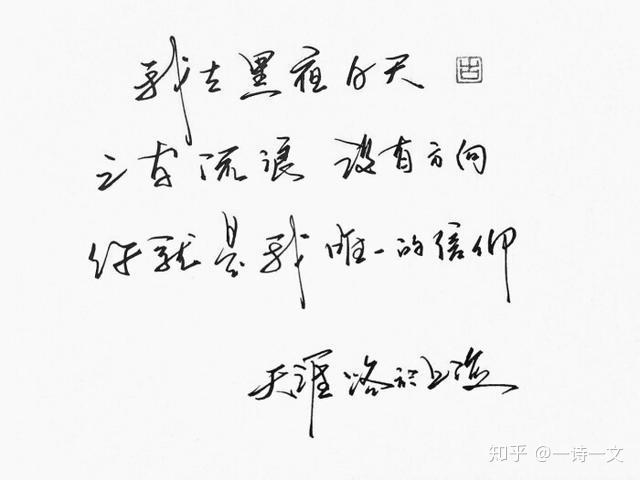 我在黑夜白天
之间流浪 没有方向
你就是我唯一的信仰
天涯 于上海
知乎 @一诗一文